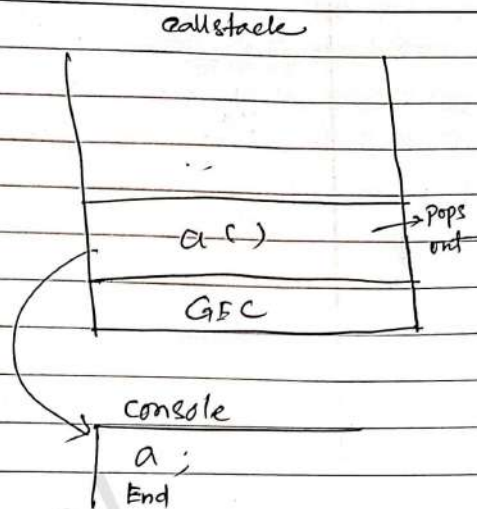 callstack
a ( )
Pops
out
GEC
console
a ;
End